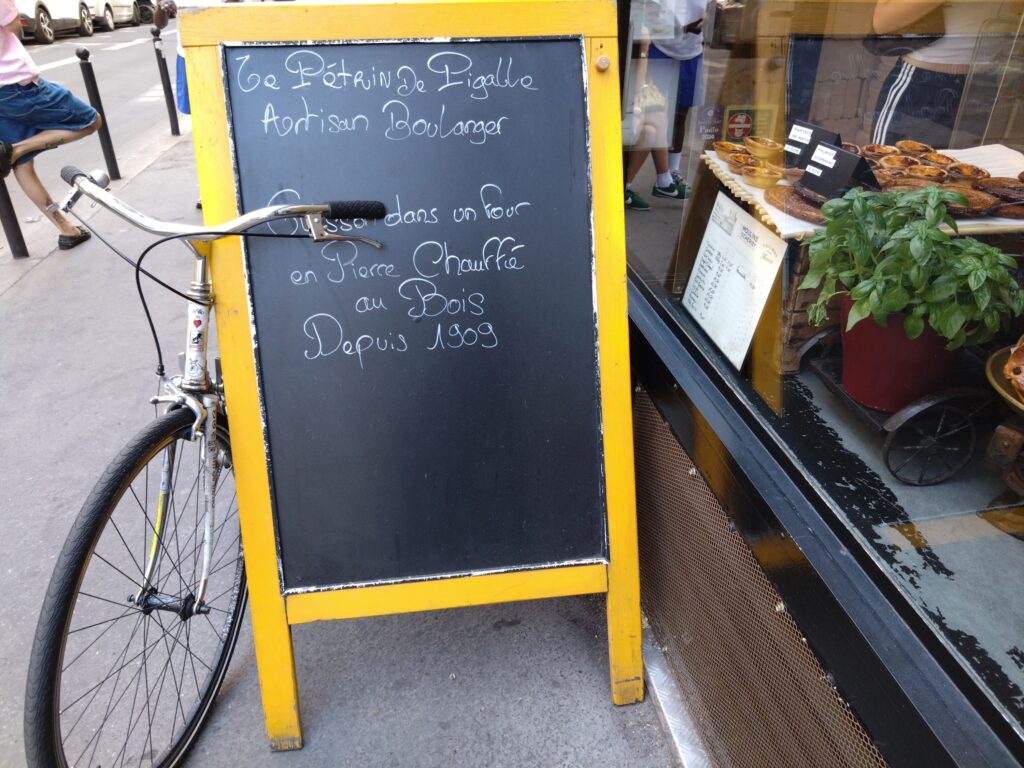 Le Pétrin De Pigalle
Artisan Boulanger
Cuisson dans un four
en Pierre Chauffé
au Bois
Depuis 1909